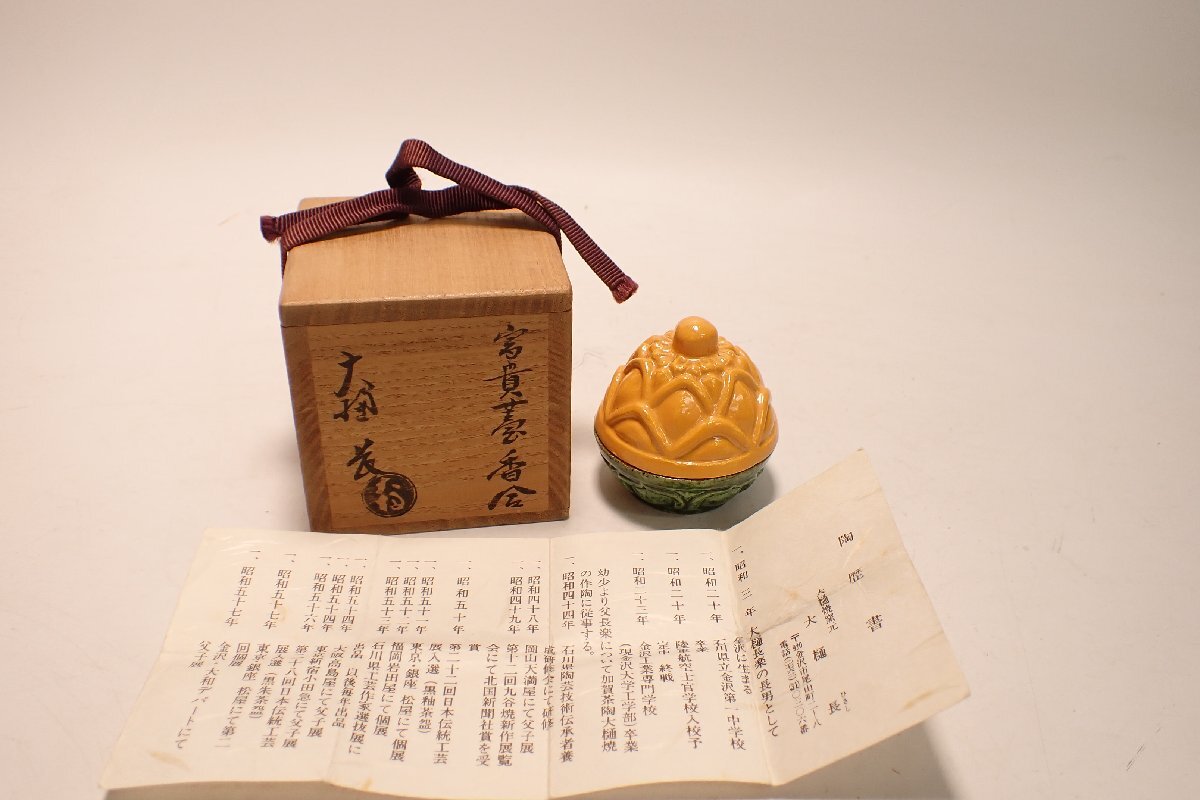 富貴臺香合
大樋 長
陶歴書
大樋焼窯元
大樋 長
ひさし
一、昭和 三 年 大樋長楽の長男として
金沢に生まる
一、昭和二十年 石川県立金沢第一中学校
卒業
一、昭和二十年 陸軍航空士官学校入校予
定 終戦
一、昭和二十三年 金沢工業専門学校
(現金沢大学工学部)卒業
幼少より父長楽について加賀茶陶大樋焼
の作陶に従事する。
一、昭和四十四年 石川県陶芸技術伝承者養
成研修会にて研修
一、昭和四十八年 岡山大満屋にて父子展
一、昭和四十九年 第十二回九谷焼新作展覧
会にて北国新聞社賞を受
賞
一、昭和五十年 第二十二回日本伝統工芸
展入選(黒釉茶盌)
一、昭和五十一年 東京・銀座 松屋にて個展
一、昭和五十二年 福岡岩田屋にて個展
一、昭和五十三年 石川県工芸作家選抜展に
出品 以後毎年出品
一、昭和五十四年 大阪高島屋にて父子展
一、昭和五十四年 東京新宿小田急にて父子展
一、昭和五十六年 第二十八回日本伝統工芸
展入選(黒朱茶盌)
一、昭和五十七年 東京・銀座 松屋にて第二
回個展
一、昭和五十七年 金沢・大和デパートにて
父子展